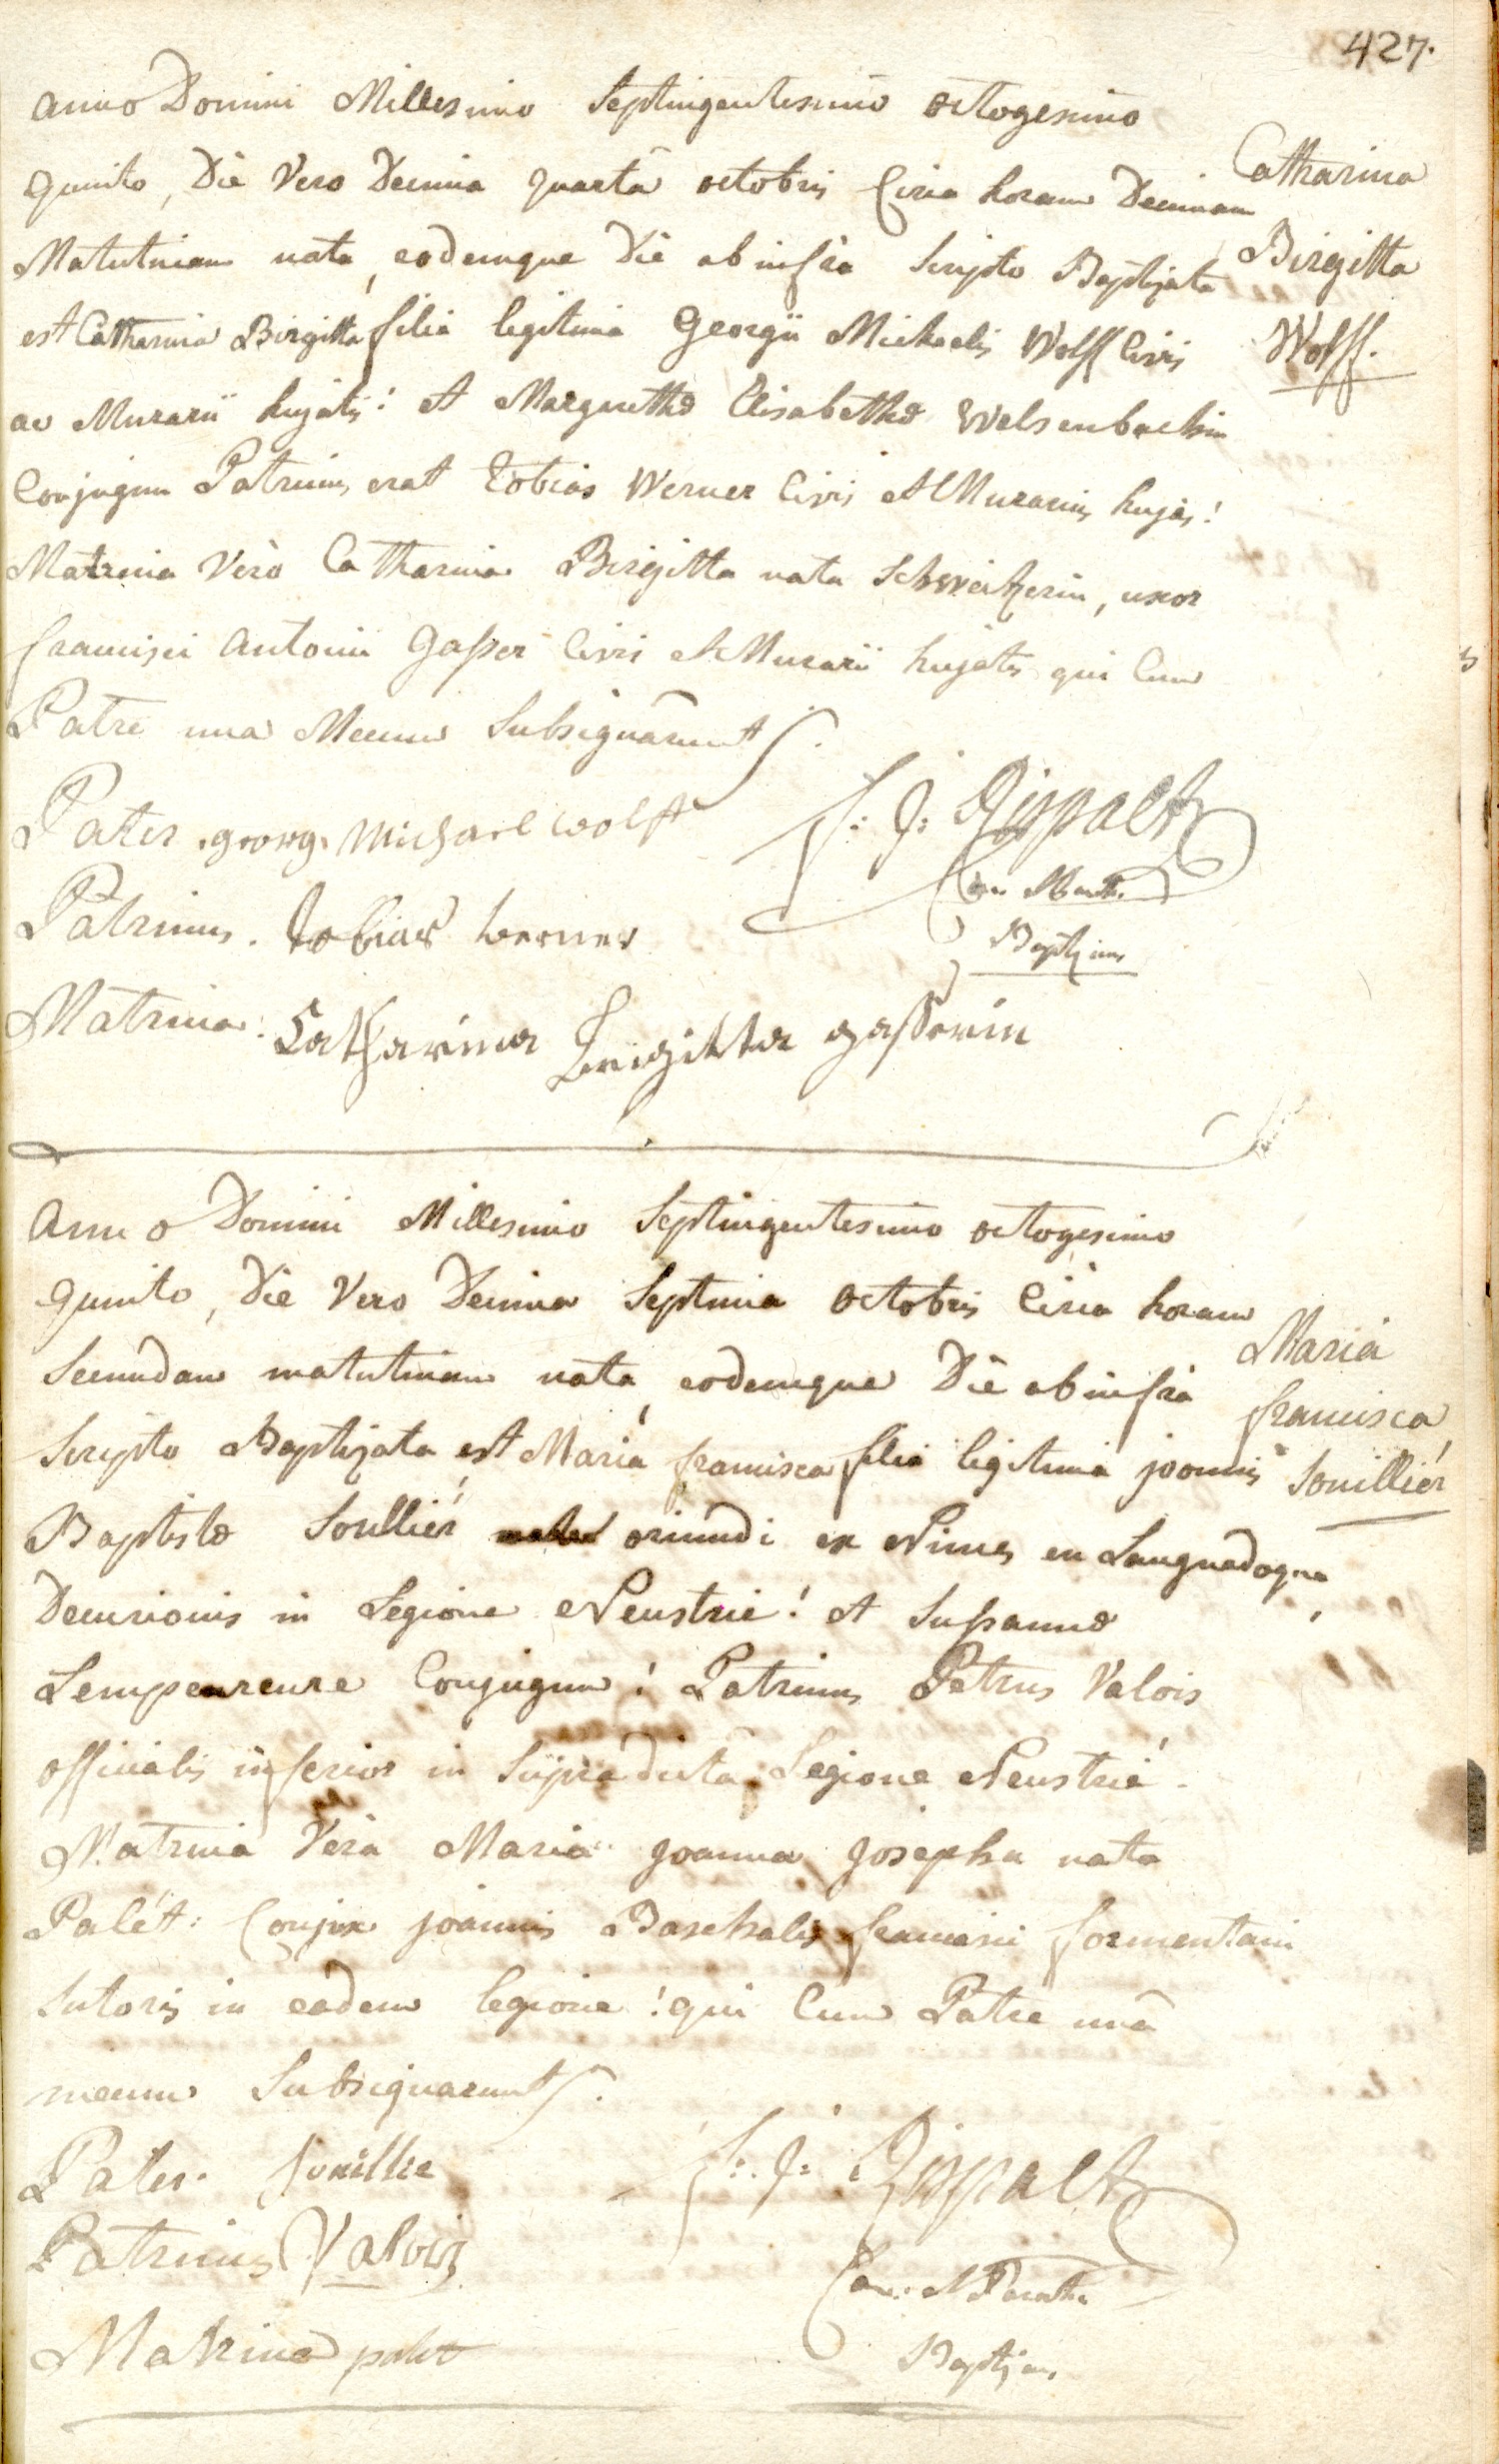 427.
Anno Domini Millesimo Septingentesimo octogesimo
quinto, Die Vero Decima quarta octobris Circa horam Decimam
Matutinam nata, eodemque Die ab infra Scripto Baptizata
est Catharina Birgitta filia legitima Georgii Michaelis Wolff Civis
ac Murarii hujatis! et Margarethæ Elisabethæ Welsenbachin
Conjugum Patrinus erat Tobias Werner Civis et Murarius hujas!
Matrina Verò Catharina Birgitta nata Schweitzerin, uxor
francisci Antonii Gasser Civis et Murarii hujatis qui Cum
Patre una Mecum Subsignârunt.
Catharina
Birgitta
Wolff.
Pater georg Michael Wolff
F: J: Rippalt
Can:
Baptizans
Patrinus. tobias werner
Matrina: Catharina Brigitta gasserin
Anno Domini Millesimo Septingentesimo octogesimo
quinto, Die Vero Decima Septima octobris Circa horam
Secundam matutinam nata, eodemque Die ab infra
Scripto Baptizata est Maria francisca filia legitima joannis
Baptistæ Soullier oriundi ex Nimes en Languedoque,
Decurionis in Legione Neustrie! et Susannæ
Lempereure Conjugum! Patrinus Petrus Valois
officialis inferior in Supradicta Legione Neustrié.
Matrina Verà Maria Joanna Josepha nata
Palét: Conjux joannis Baschalis francisci formentani
Sutoris in eadem legione! qui Cum Patre unâ
mecum Subsignarunt.
Maria
francisca
Souilliér
Pater. Souillie
F: J: Rippalt
Can:
Baptizans
Patrinus Valois
Matrina palet